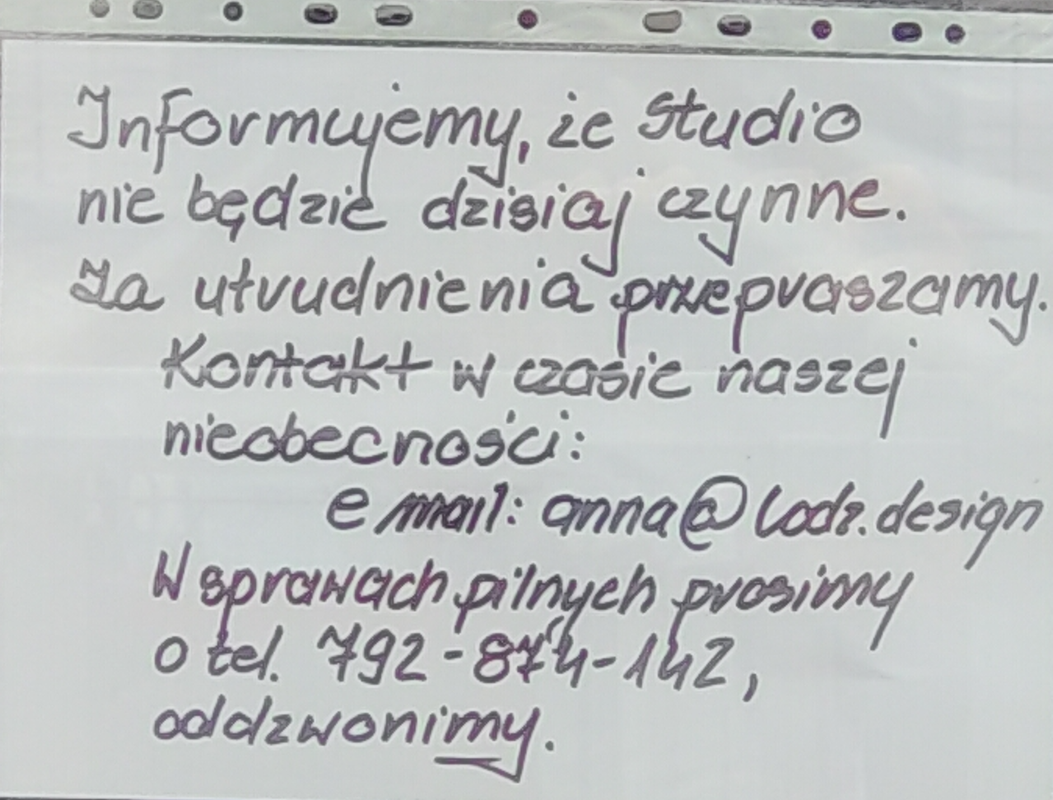 Informujemy, że studio
nie będzie dzisiaj czynne.
Za utrudnienia przepraszamy.
Kontakt w czasie naszej
nieobecności:
e mail: anna@lodz.design
W sprawach pilnych prosimy
o tel. 792-874-142,
oddzwonimy.